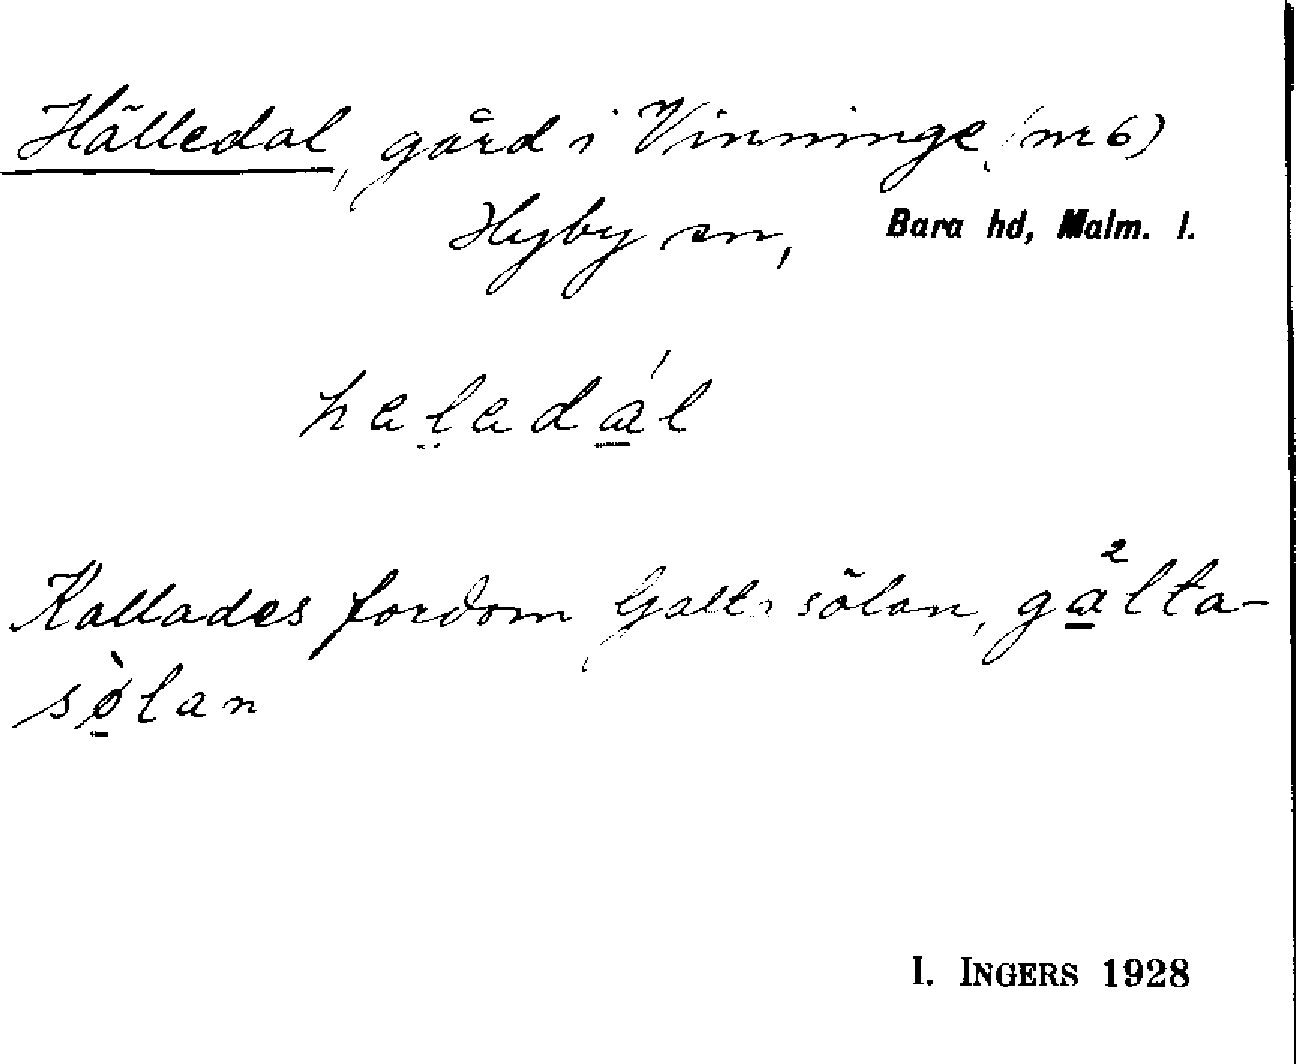 Hälledal, gård i Vinninge (nr 6)
Hyby sn, Bara hd, Malm. l.
haladál
Kallades fordom sölan, gålta-
sòlan
I. INGERS 1928